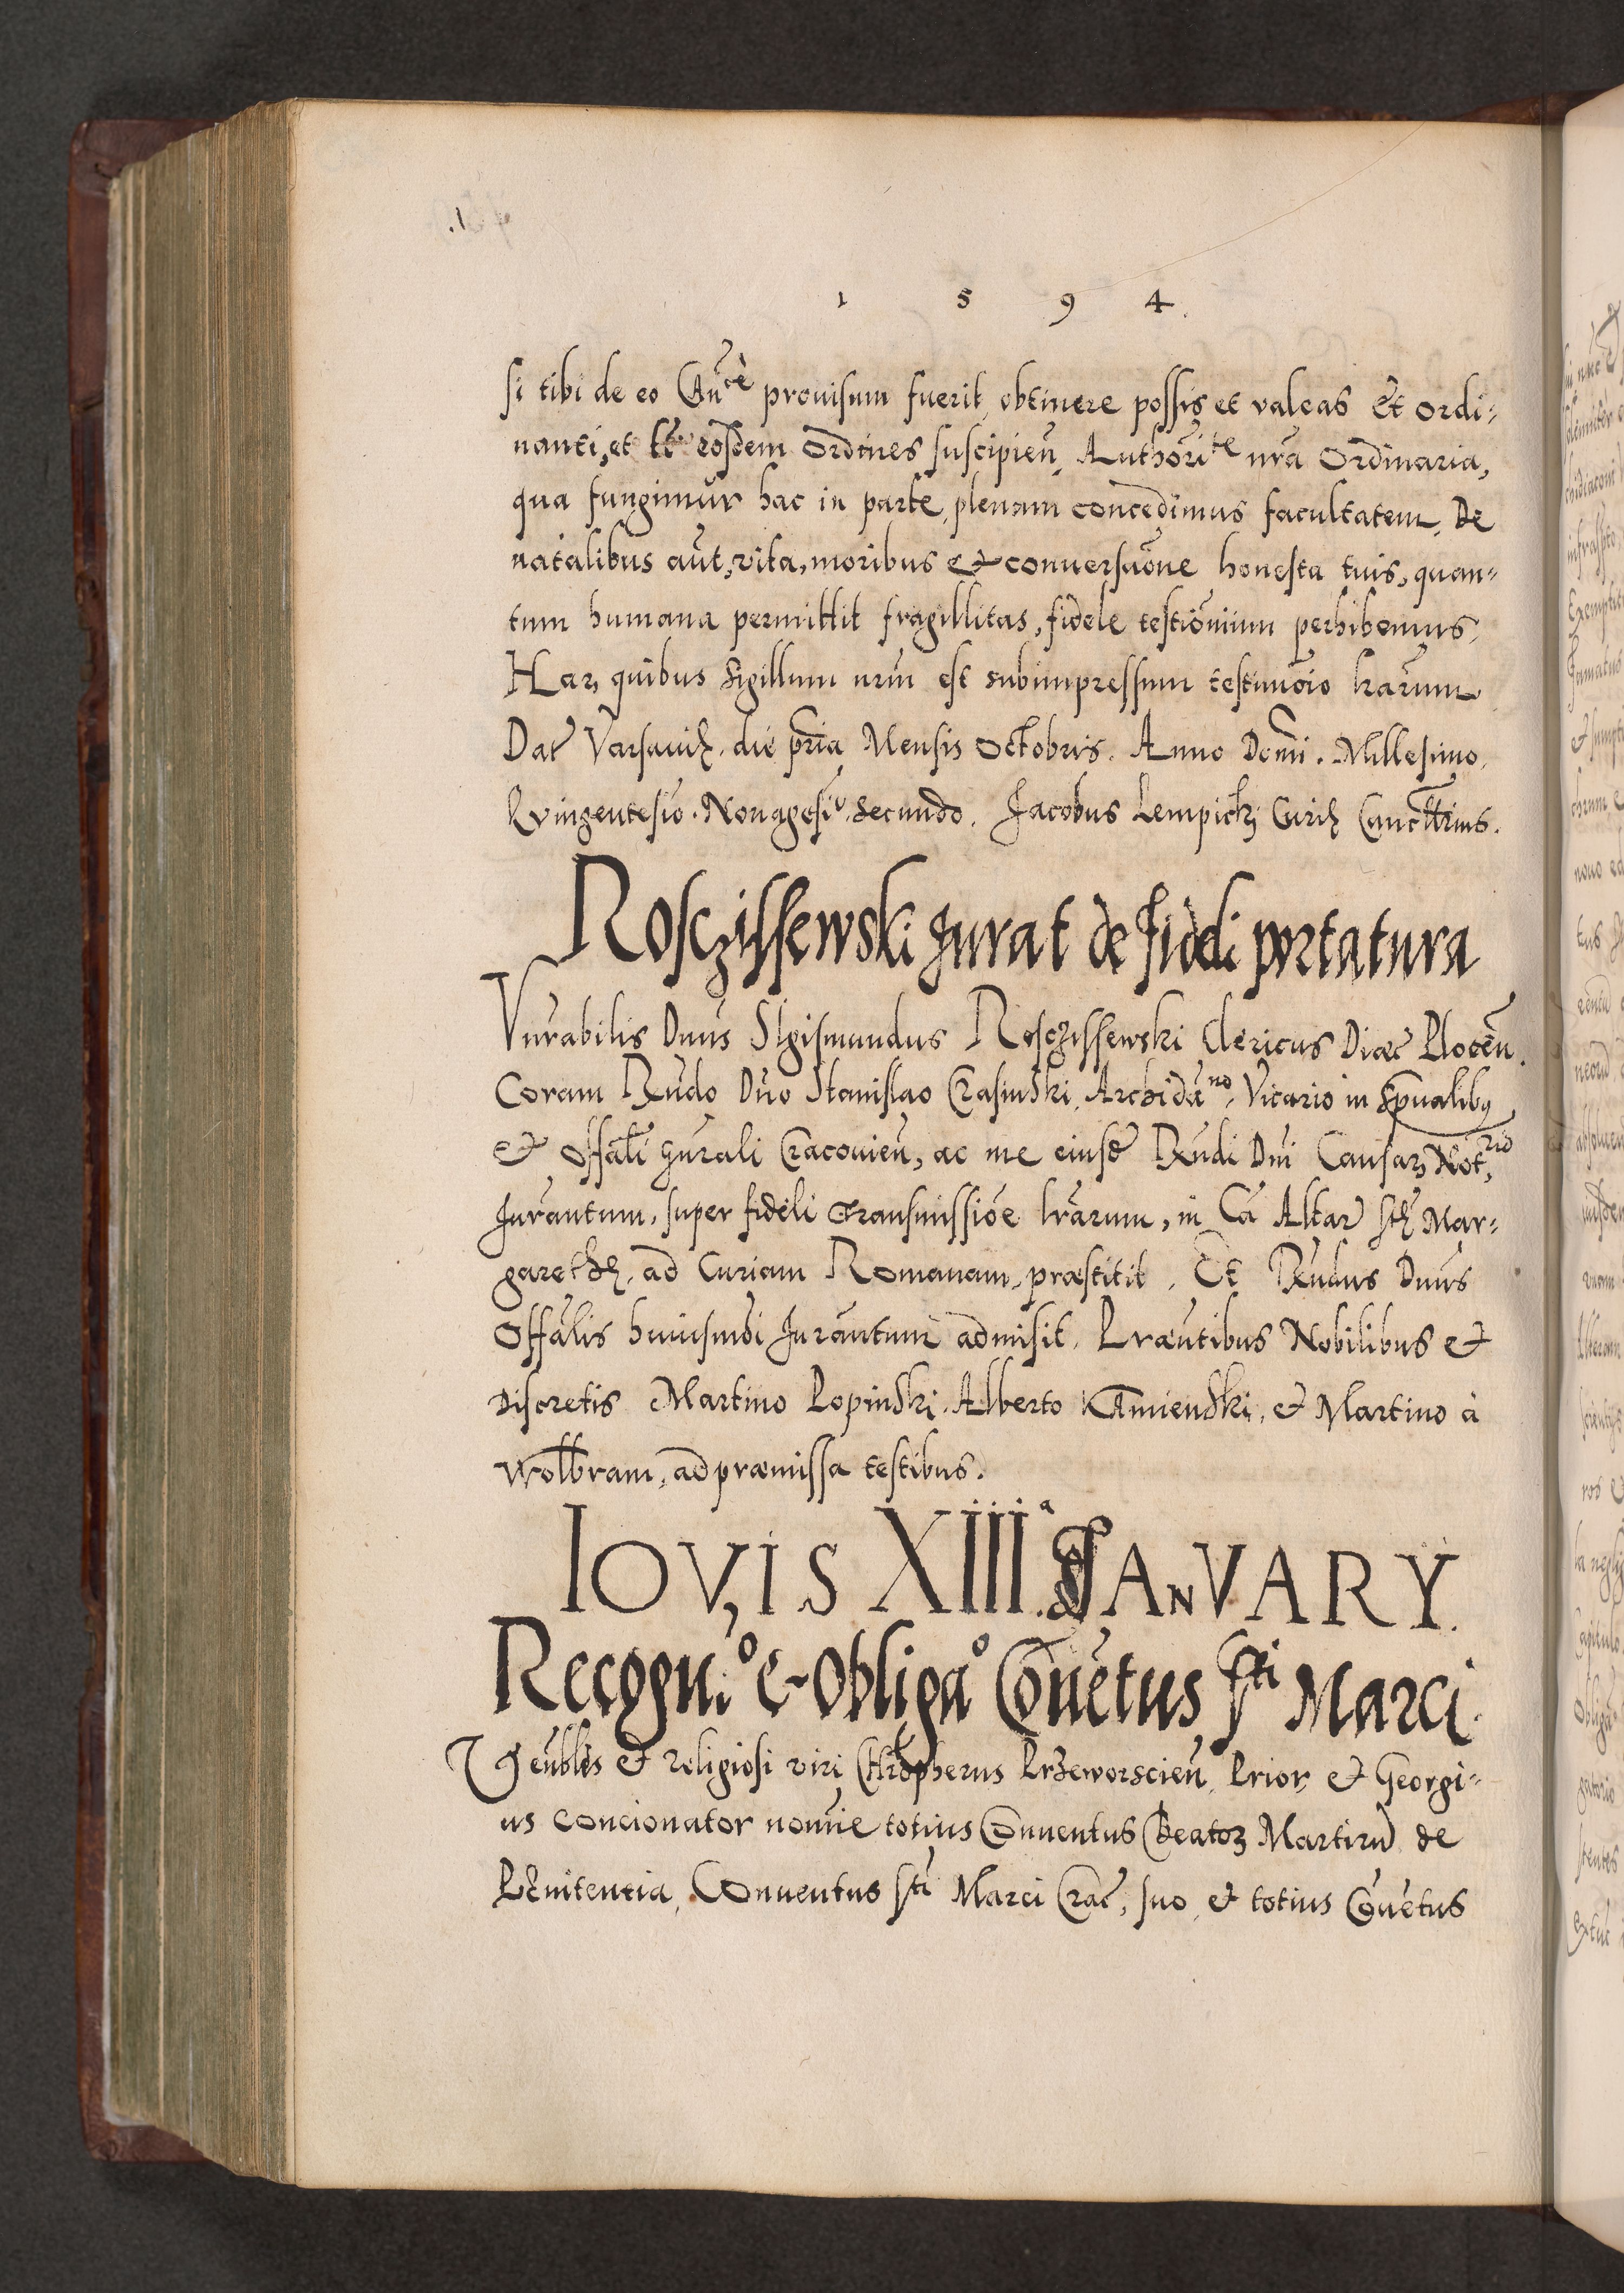 1 5 9 4.
si tibi de eo Cań͠cè prouisum fuerit, obtinere possis et valeas Et ordi-
nanti, et t͠t eosdem ordines suscipień, Authori͠te n͠ra Ordinaria,
qua fungimur hac in parte, plenam concedimus facultatem, De
natalibus aũt, vita, moribus et conuersãone honesta tuis, quan-
tum humana permittit fragillitas, fidele testiõnium perhibemus,
Harꝝ quibus Sigillum nr̃m est subimpressum testimõio lr̃arum
Dat̃ Varsauię, die pr̃ia Mensis Octobris. Anno Domi͂. Millesimo,
Qvingentesi͂o. Nonagesi͂o. Secundo. Jacobus Lempickj Curię Canc͠llrius.
Rosczissewski Jurat de fideli portatura
Vn͂rabilis Dn͂us SIgismundus Rosczissewski Clericus Diœc̃ Plocen͂.
Coram R͂ndo Dn͂o Stanislao Crasinski, Archidã͏no, Vicario in Sp͂ualibꝯ
et Offãli gn͂rali Cracouien͂, ac me eiusd̃ R͂ndi Dn͂i Causarꝝ Not͂rio,
Jurãntum, super fideli transmissiõe lr̃arum, in Cã Altar̃ s͂tę Mar-
garethę, ad Curiam Romanam, præstitit. Et R͂ndus Dn͂us
Offãlis huiusmõi Jurãntum admisit, Præn͂tibus Nobilibus et
Discretis Martino Lopinski, Alberto KAmienski, et Martino à
Wolbram, ad præmissa testibus.
IOVIS XIII.ª JANVARY.
Recogn͂.° et Obliga͂° Cõuẽtus S͂ti Marci.
Veñbl͂es et religiosi viri CHr͂opherus Przeworscien͂, Prior, et Georgi-
us Concionator nomi͂e totius Cõnuentus Beatoꝝ Martirũ de
PEnitentia, Conuentus S͂ti Marci Crac̃, suo, et totius Cõuẽtus